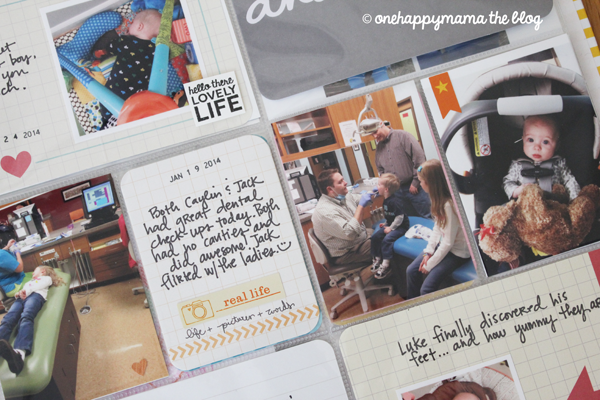 © onehappymama the blog
et
r boy.
you
ch.
2 4 2014
hello there
LOVELY
LIFE
JAN 1 9 2014
Both Caylin & Jack
had great dental
check ups today. Both
had no cavities and
did awesome. Jack
flirted w/ the ladies.
real life
life + pictures + words
Luke finally discovered his
feet... and how yummy they a